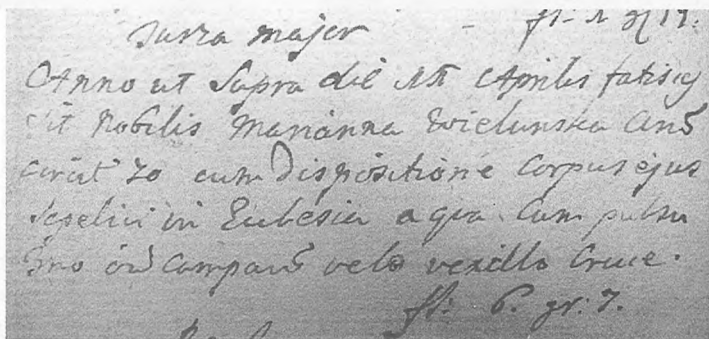 Surra major - fl: 1 gr 14:
Anno ut Supra die 17 Aprilis fatis
sit Nobilis Marianna Wielunska Ano
circit 70 cum Dispositione Corpus ejus
Sepelivi in Eclesia a qua Cum pulsu
omo campano velo vexillo Cruce.
fl: 6. gr: 7.